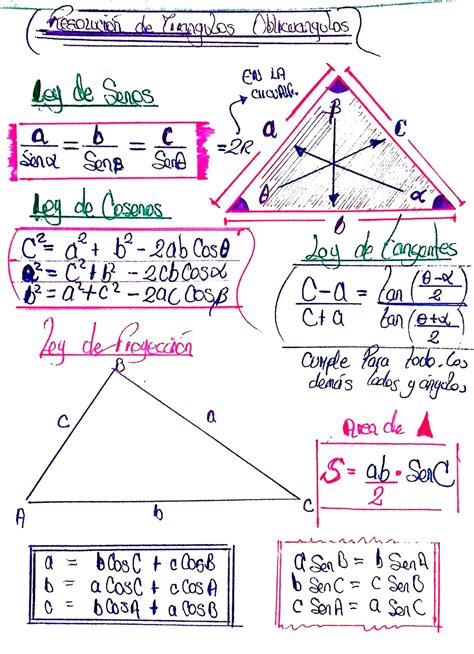 Resolución de Triangulos Oblicuangulos
Ley de Senos
a/Senα = b/SenB = c/Senθ = 2R
EN LA
a
B
c
θ
α
b
Ley de Cosenos
C² = a² + b² - 2ab Cosθ
a² = C² + b² - 2cb Cosα
b² = a² + c² - 2ac CosB
Ley de Tangentes
C-a/C+a = tan(θ-α/2)/tan(θ+α/2)
Cumple Para todo los
demás lados y ángulos
Ley de Proyección
B
c
a
A
b
C
Area de
S = ab/2 · SenC
a = b CosC + c CosB
b = a CosC + c CosA
c = b CosA + a CosB
a SenB = b SenA
b SenC = c SenB
c SenA = a SenC